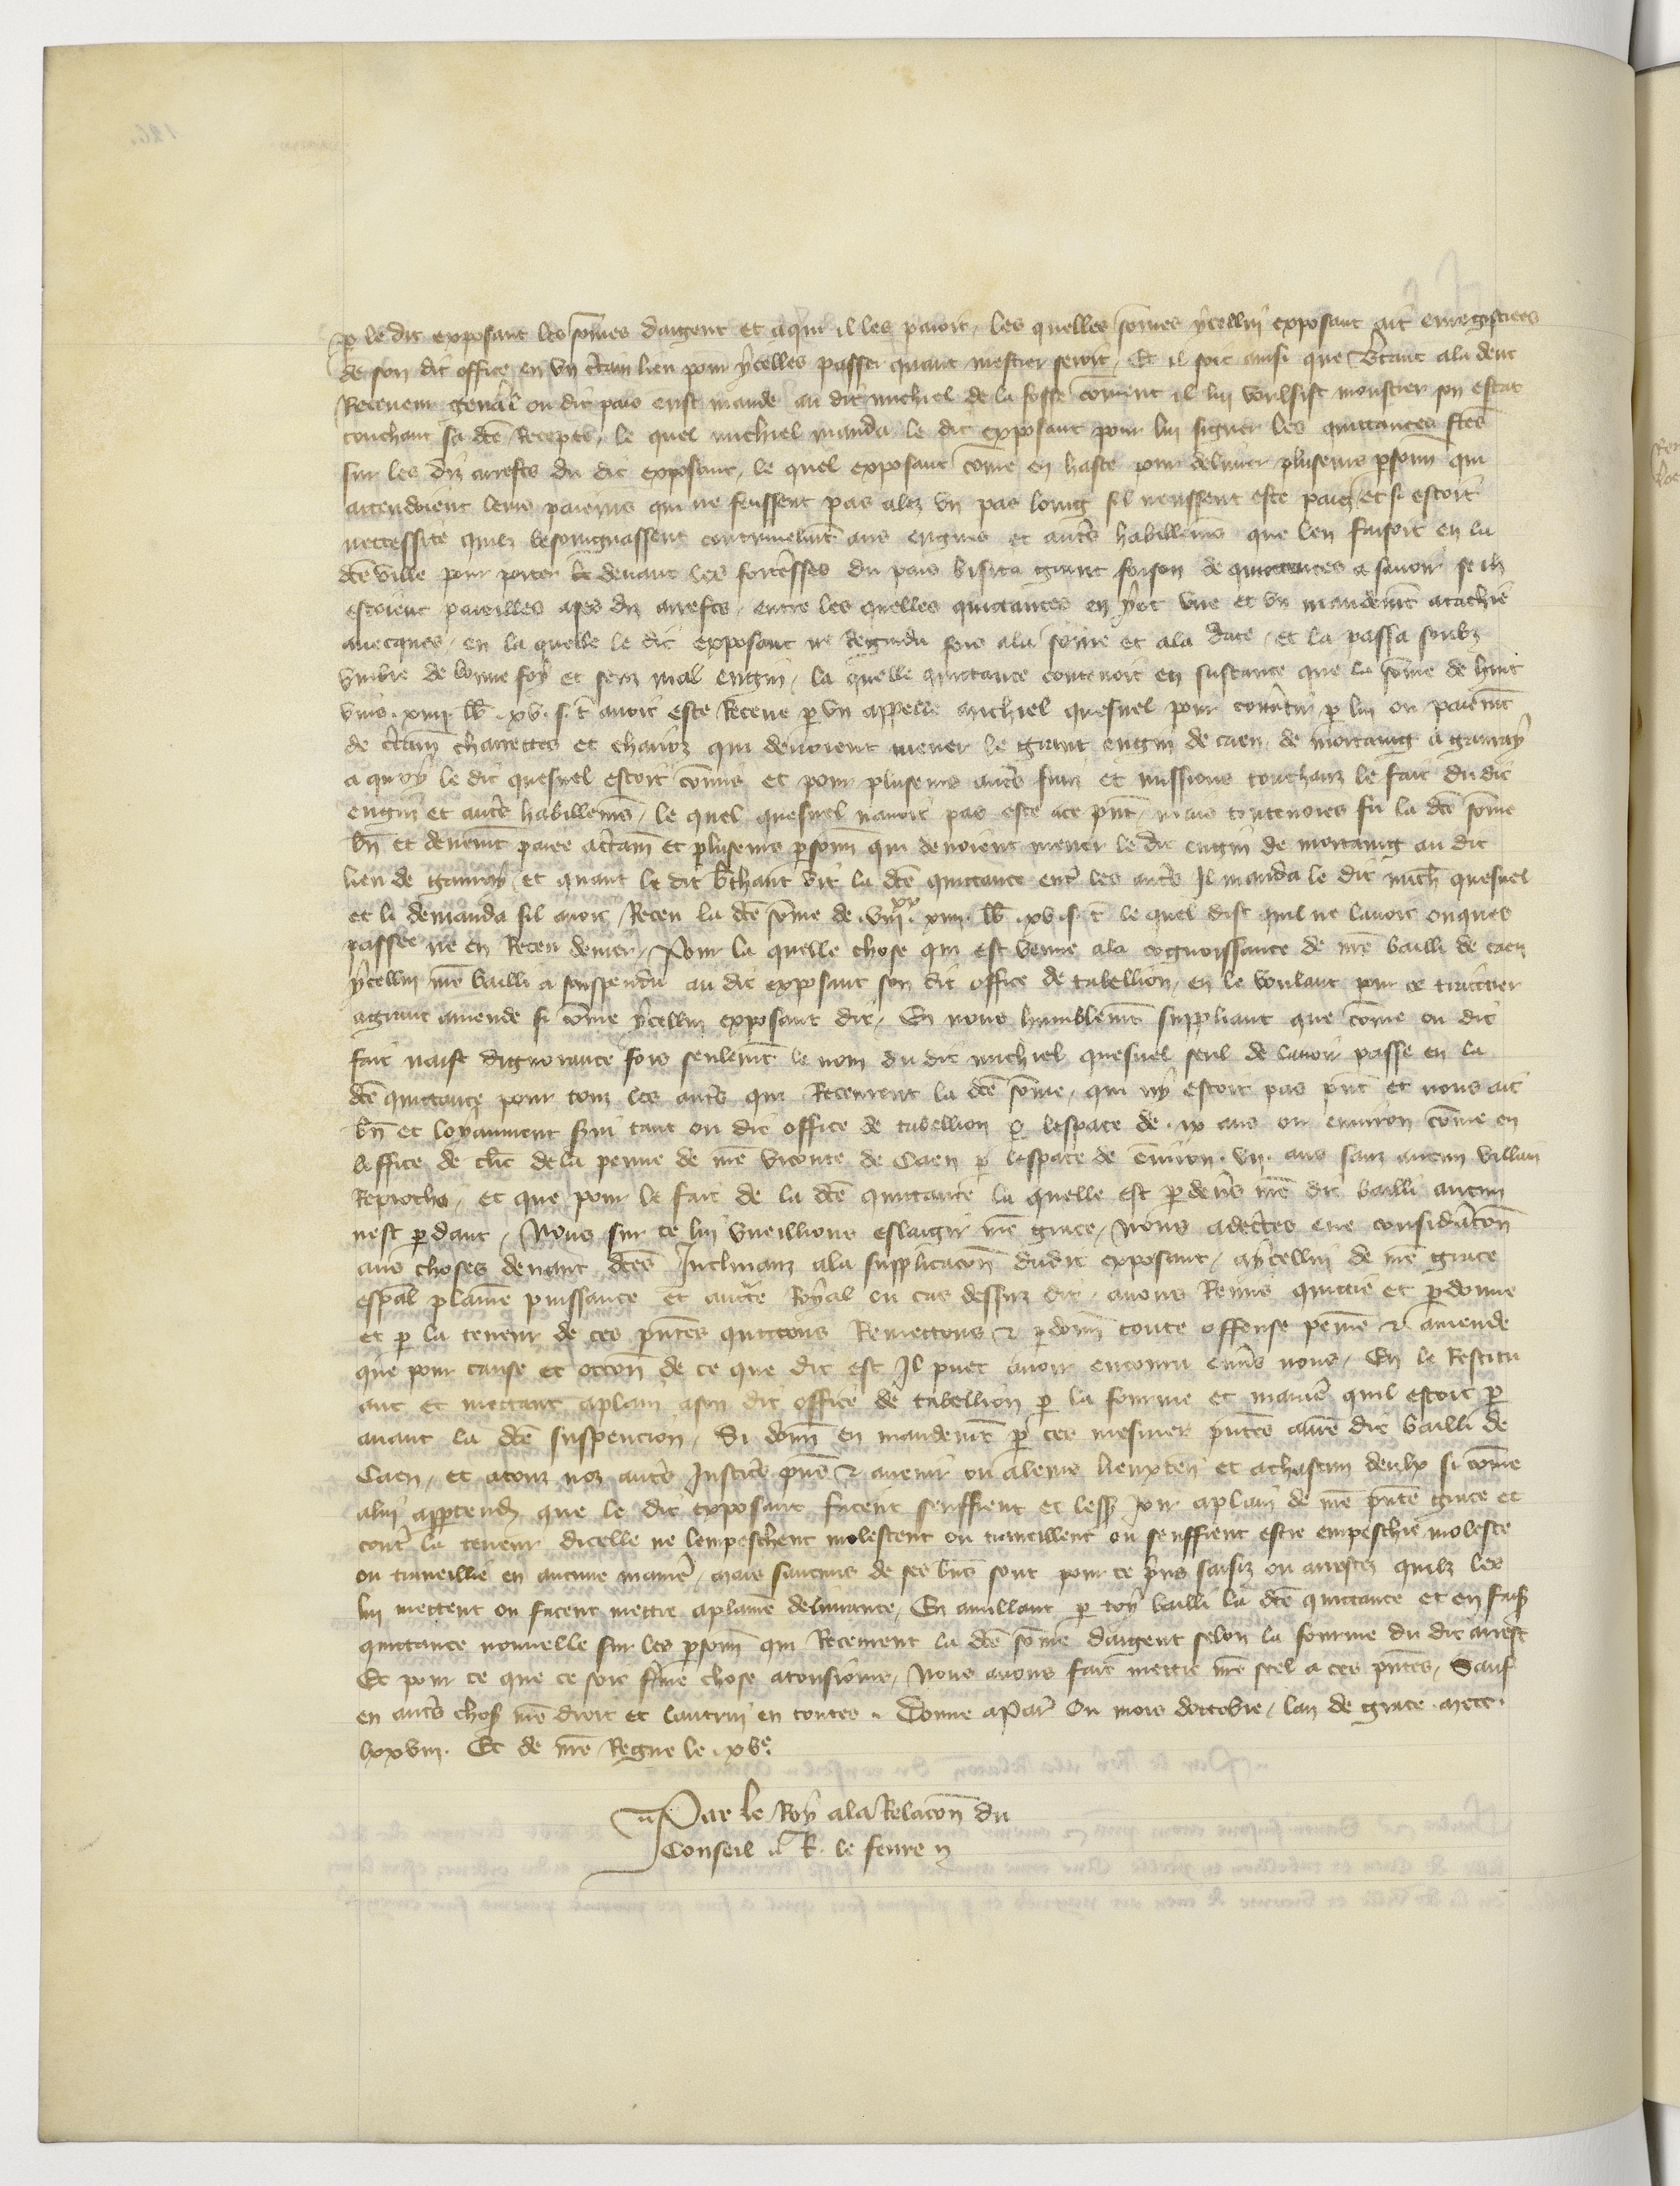 p le dit exposant les sōmes dargent et aqui il les paioit, les quelles sōmes ycellui exposant ait enregistrees
de son dit office en vn c̄tain lieu pour ycelles passer quant mestier seroit, Et il soit ainsi que
Receueur genāl ou dit pais eust mande au dit michiel de la fosse cōment il lui voulsist monstrer son estat
touchant sa dc̄e Recepte, le quel michiel manda le dit exposant pour lui signer les quittances fc̄es
sur les diz arrests du dit exposant, le quel exposant cōme en haste pour deliurer pluseurs psonn̄ qui
attendoient leurs paiem̄s qui ne feussent pas alez vn pas loing sil neussent este paiez et si estoit
neccessite quilz besoingnassent continuelm̄t aus engins et aut̄s habillem̄s que len faisoit en la
dc̄e ville pour porter deuant les fort̄esses du pais visita grant foison de quittances a sauoir se ilz
estoient pareilles ases diz arrests, entre les quelles quittances en yot vne et vn mandem̄t atachie
auecques, en la quelle le dit exposant ne Regarda fors ala sōme et ala date, et la passa soubz
vmbre de bonne foy et senz mal engin, la quelle quittance contenoit en sustance que la sōme de huit
vins .xiiij. lb̄ .xv. s. t̄ auoit este Receue p vn appelle michiel quesnel pour conūtir p lui ou paiem̄t
de c̄tain̄ charrettes et cheūaz qui deuoient mener le grant engin de caen de mortaing a gauray
a quoy le dit quesnel estoit cōmis et pour pluseurs aut̄s fraiz et missions touchanz le fait du dit
engin et aut̄s habillem̄s, le quel quesnel nauoit pas este ace pn̄t, mais toutenoies fu la dc̄e sōme
bn̄ et deuem̄t paiee ac̄tain̄ et pluseurs psonn̄ qui deuoient mener le dit engin de mortaing au dit
lieu de gauray, et quant le dit vit la dc̄e quittance ent̄ les aut̄s Il manda le dit mich̄ quesnel
et li demanda sil auoit Receu la dc̄e sōme de .viij.xx xiiij. lb̄ .xv. s. t̄ le quel dist quil ne lauoit onques
passee ne en Receu denier, Pour la quelle chose qui est venue ala cognoissance de nr̄e bailli de caen
ycellui nr̄e bailli a souspendu au dit exposant son dit office de tabellion, en le voulant pour ce traictier
agrant amende si cōme ycellui exposant dit, En nous humblem̄t suppliant que cōme ou dit
fait naist dignorance fors seulem̄t le nom du dit michiel quesnel seul de lauoir passe en la
dc̄e quittance pour touz les aut̄s qui Receurent la dc̄e sōme, qui ny estoit pas pn̄t et nous ait
bn̄ et loyaument serui tant ou dit office de tabellion p lespace de .ix ans ou enuiron cōme en
loffice de clerc de la penne de nr̄e viconte de Caen p lespace de enuiron .vij. ans sanz aucun villain
Reproche, et que pour le fait de la dc̄e quittance la quelle est p deu̅s nr̄e dit bailli aucun
nest p dant, Nous sur ce lui vueillions eslargir nr̄e grace, Nous adecertes eue consid̄acōn
aus choses deuant dc̄es Inclinanz ala supplicacōn dudit exposant, aycellui de nr̄e grace
esp̄al plaine puissance et auct̄e Royal ou cas dessuz dit, auons Remis quittie et pdonne
et p la teneur de ces pn̄tes quittons Remettons & pdonn̄ toute offense peinne & amende
que pour cause et occōn de ce que dit est Il puet auoir encouru enu̅s nous, En le Restitu
ant et mettant aplain ason dit office de tabellion p la fourme et manie̅ quil estoit p
auant la dc̄e suspencion, Si donn̄ en mandem̄t p ces mesmes pn̄tes aure̅ dit bailli de
Caen, et atouz noz aut̄s Justic̄s pn̄s & auenir ou aleurs lieuxten̄ et achascun deulx si cōme
alui app̄tendra, que le dit exposant facent seuffrent et lessent Joir aplain de nr̄e pn̄te grace et
cont̄ la teneur dicelle ne lempeschent molestent ou traueillent ou seuffrent estre empeschie moleste
ou traueillie en aucune manie̅, mais saucuns de ses bn̄s sont pour ce p̄ns saisiz ou arrestez quilz les
lui mettent ou facent mettre aplaine deliurance, En anullant p toy bailli la dc̄e quittance et en faisant
quittance nouuelle sur les psonn̄ qui Receurent la dc̄e sōme dargent selon la fourme du dit arrest
Et pour ce que ce soit ferme chose atousiours, Nous auons fait mettre nr̄e seel a ces pn̄tes, Sauf
en aut̄s choses nr̄e droit et lautrui en toutes. Donne aPar̄ Ou mois doctobre, lan de grace mccc.
lxxviij. Et de nr̄e Regne le .xve.
Par le Roy ala Relacōn du
Conseil R. le feure